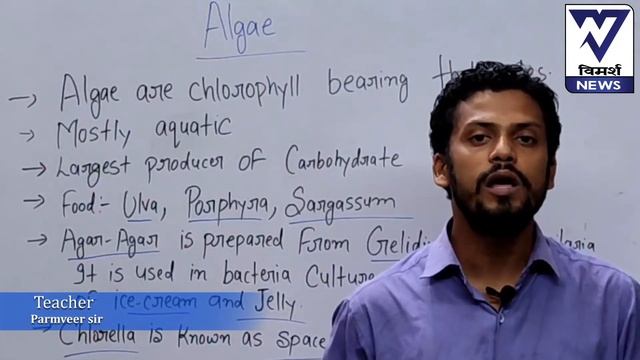 Algae
→ Algae are chlorophyll bearing
→ Mostly aquatic
→ Largest producer of Carbohydrate
→ Food:- Ulva, Porphyra, Sargassum
→ Agar-Agar is prepared From
It is used in bacteria Culture
ice-cream and Jelly.
→ Chlorella is known as space
Teacher
Parmveer sir
विमर्श
NEWS